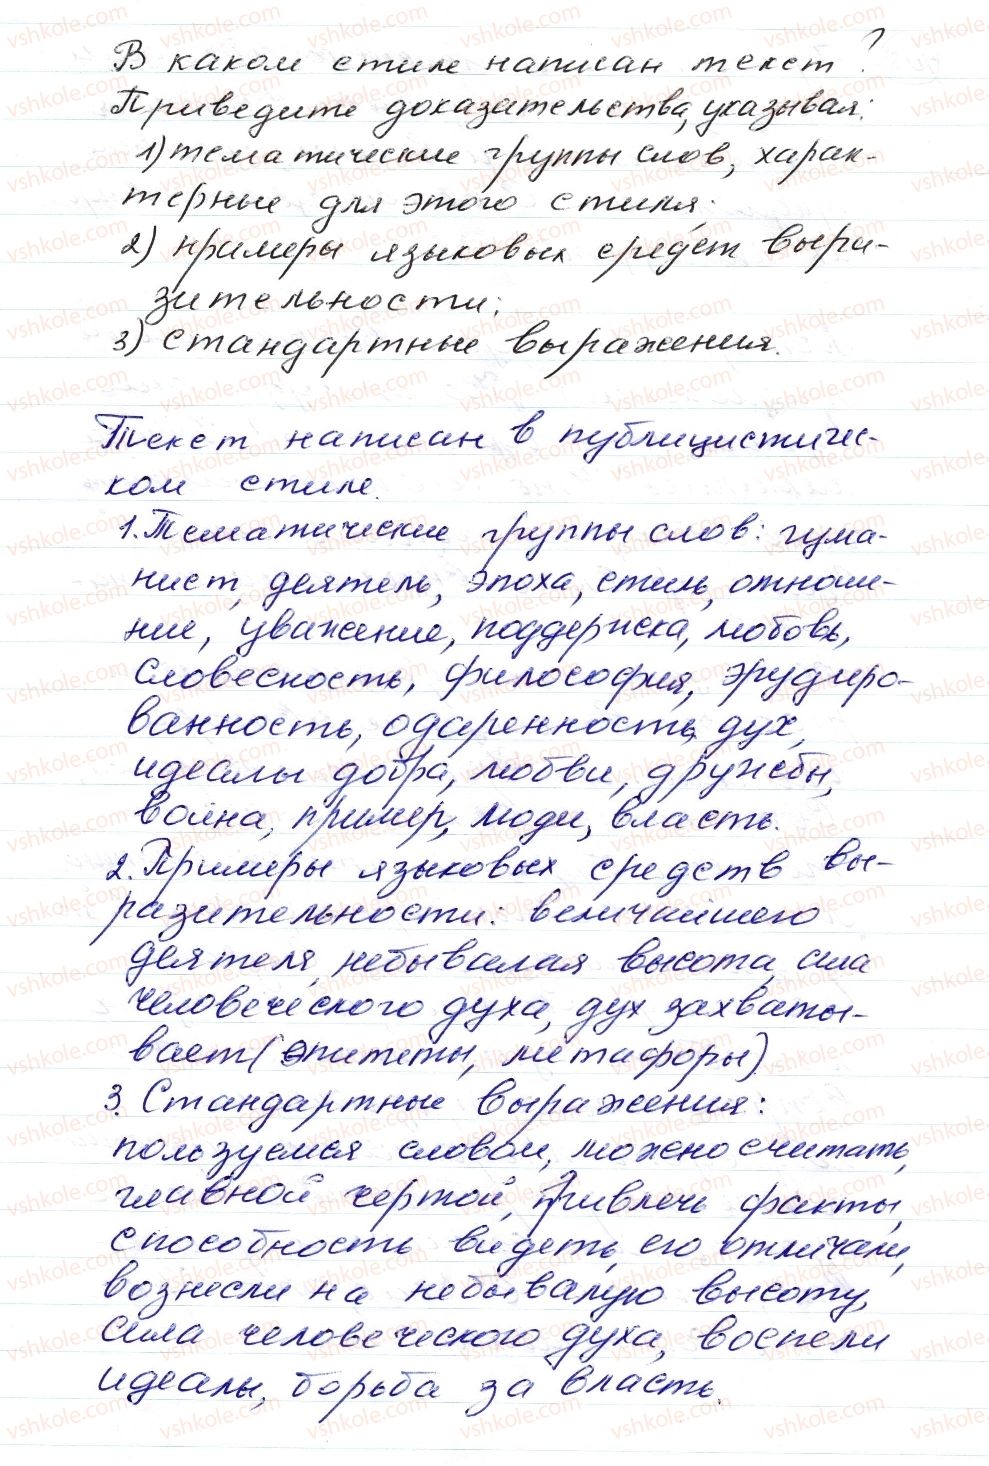 В каком стиле написан текст?
Приведите доказательства, указывая:
1) тематические группы слов, харак-
терные для этого стиля;
2) примеры языковых средст выра-
зительности;
3) стандартные выражения.
Текст написан в публицистичес-
ком стиле.
1. Тематические группы слов: гума-
нист, деятель, эпоха, стиль, отноше-
ние, уважение, поддержка, любовь,
словесность, философия, эрудиро-
ванность, одаренность, дух,
идеалы добра, любви, дружебы,
война, пример, люди, власть.
2. Примеры языковых средств вы-
разительности: величайшего
деятеля, небывалая высота, сила
человеческого духа, дух захваты-
вает (эпитеты, метафоры)
3. Стандартные выражения:
пользуемся словом, можно считать,
главной чертой, привлечь факты,
способность видеть, его отличали,
вознесли на небывалую высоту,
сила человеческого духа, воспели
идеалы, борьба за власть.